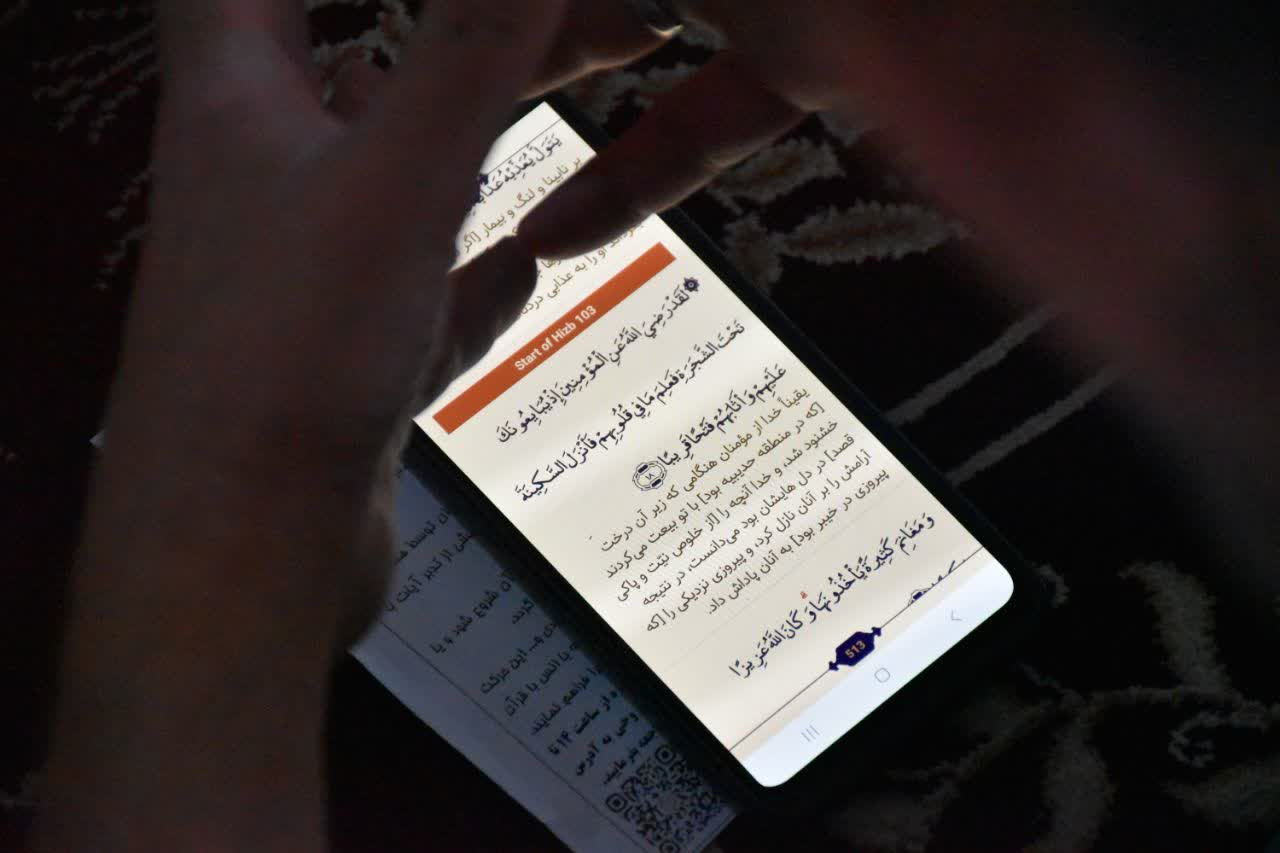 يَتَوَلَّ يُعَذِّبْهُ
بر نابینا و لنگ و بیمار [اگر
او را به عذابی
Start of Hizb 103
لَقَدْ رَضِيَ اللَّهُ عَنِ الْمُؤْمِنِينَ إِذْ يُبَايِعُونَكَ
تَحْتَ الشَّجَرَةِ فَعَلِمَ مَا فِي قُلُوبِهِمْ فَأَنْزَلَ السَّكِينَةَ
عَلَيْهِمْ وَأَثَابَهُمْ فَتْحًا قَرِيبًا ١٨
یقیناً خدا از مؤمنان هنگامی که زیر آن درخت
[که در منطقه حدیبیه بود] با تو بیعت می‌کردند
خشنود شد، و خدا آنچه را [از خلوص نیّت و پاکی
قصد] در دل هایشان بود می‌دانست، در نتیجه
آرامش را بر آنان نازل کرد، و پیروزی نزدیکی را [که
پیروزی در خیبر بود] به آنان پاداش داد.
وَمَغَانِمَ كَثِيرَةً يَأْخُذُونَهَا وَكَانَ اللَّهُ عَزِيزًا
513
توسط
از تدبر آیات
شروع شود و با
کردد.
این حرکت
انس با قرآن
فراهم نمایند
از ساعت ۱۴ تا
به آدرس